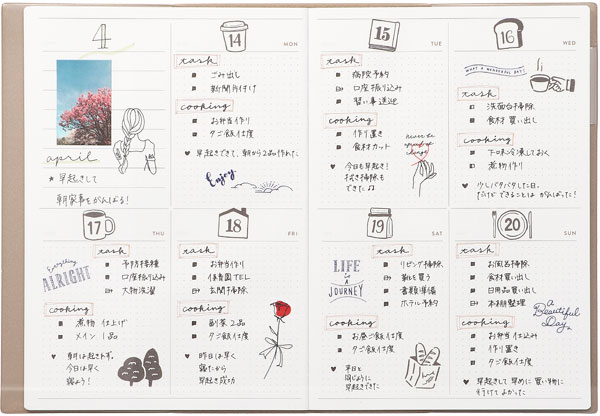 4
april
★ 早起きして
朝家事をがんばる!
14
MON
task
ごみ出し
新聞片付け
cooking
お弁当作り
夕ご飯仕度
♥ 早起きできて、朝から2品作れた
Enjoy
15
TUE
task
病院予約
口座振り込み
習い事送迎
cooking
作り置き
食材カット
never be
afraid of
change
♥ 今日も早起き!
拭き掃除も
できた♫
16
WED
WHAT A WONDERFUL DAY!
task
洗面台掃除
食材買い出し
cooking
下味冷凍しておく
煮物作り
♥ 少しバタバタした日。
だけどできることはがんばった!
17
THU
Everything
ALRIGHT
task
予防接種
口座振り込み
大物洗濯
cooking
煮物仕上げ
メイン1品
♥ 朝は起きれず。
今日は早く
寝よう!
18
FRI
task
お弁当作り
保育園TEL
玄関掃除
cooking
副菜2品
夕ご飯仕度
♥ 昨日は早く
寝たから
早起き成功
19
SAT
LIFE
is
A
JOURNEY
task
リビング掃除
靴を買う
書類準備
ホテル予約
cooking
お昼ご飯仕度
夕ご飯仕度
♥ 平日と
同じように
早起きできた
20
SUN
task
お風呂掃除
食材買い出し
日用品買い出し
本棚整理
a
Beautiful
Day
cooking
お弁当仕込み
作り置き
夕ご飯仕度
♥ 早起きして早めに買い物に
行けてよかった